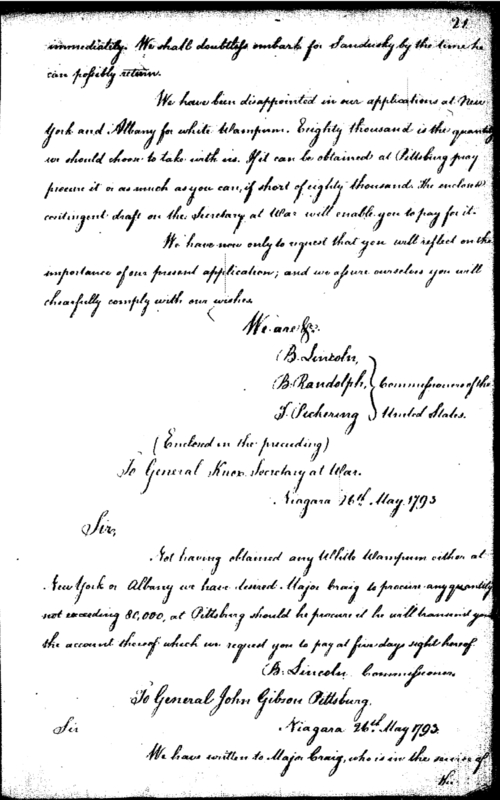 21
immediately. We shall doubtless embark for Sandusky by the time he
can possibly return.
We have been disappointed in our applications at New
York and Albany for white Wampum. Eighty thousand is the quantity
we should choose to take with us. If it can be obtained at Pittsburg pray
procure it or as much as you can, if short of eighty thousand. The enclosed
contingent draft on the Secretary at War will enable you to pay for it.
We have now only to request that you will reflect on the
importance of our present application; and we assure ourselves you will
chearfully comply with our wishes.
We are &c.
B. Lincoln,
B. Randolph, Commissioners of the
T. Pickering United States.
(Enclosed in the preceding)
To General Knox Secretary at War.
Niagara 26th May 1793
Sir,
Not having obtained any White Wampum either at
New York or Albany we have desired Major Craig to procure any quantity
not exceeding 80,000, at Pittsburg should he procure it he will transmit you
the account thereof which we request you to pay at five days sight hereof.
B. Lincoln Commissioner
To General John Gibson Pittsburg.
Sir Niagara 26th May 1793.
We have written to Major Craig, who is in the service of
the